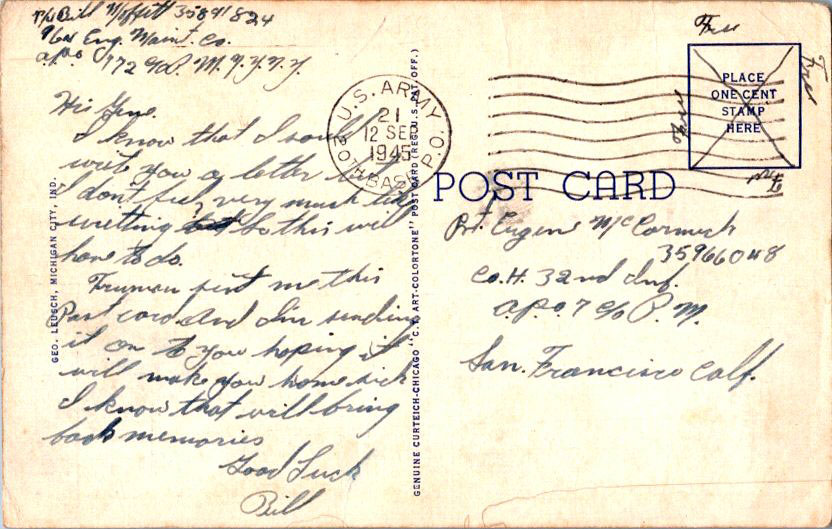 Bill Moffitt 35891824
964 Eng. Maint. Co.
a.p.o 172 c/o P.M. N.Y. N.Y.
Hi Gene.
I know that I would
write you a letter but
I don't feel very much like
writting but So this will
have to do.
Truman sent me this
Post card And I'm sending
it on to you hoping it
will make you home sick
I know that will bring
back memories
Good Luck
Bill
GEO. LEUSCH, MICHIGAN CITY, IND.
GENUINE CURTEICH-CHICAGO "C.T. ART-COLORTONE" POST CARD (REG. U.S. PAT. OFF.)
U.S. ARMY P.O.
21
12 SEP
1945
20TH BASE
Free
Free
Free
Free
PLACE
ONE CENT
STAMP
HERE
POST CARD
Pvt. Eugene McCormick
35966048
Co. H. 32nd Inf.
a.p.o 7 c/o P.M.
San. Francisco Calf.